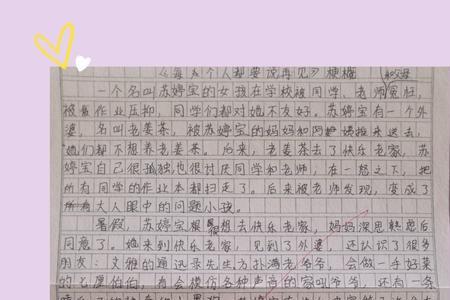 《每个人都要说再见》梗概
一个名叫苏婷宝的女孩在学校被同学、老师冤枉,
被作业压抑,同学们都对她不友好。苏婷宝有一个外
婆,名叫老姜茶,被苏婷宝的妈妈和阿姨推来送去,
她们都不想养老姜茶。后来,老姜茶去了快乐老家,苏
婷宝自己很孤独也很讨厌同学和老师,在一怒之下,把
所有同学的作业本都扫走了。后来被老师发现,变成了
大人眼中的问题小孩。
暑假,苏婷宝很想去快乐老家,妈妈深思熟虑后
同意了。她来到快乐老家,见到了外婆,还认识了很多
朋友:文雅的通迅录先生,方扑满老爷爷,会做一手好菜
的 伯伯,有会模仿各种声音的 爷爷,还有一条